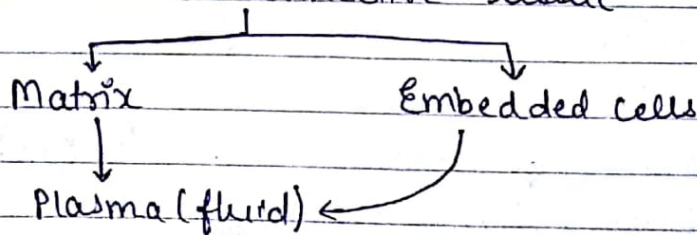 Matrix Embedded cells
Plasma (fluid)